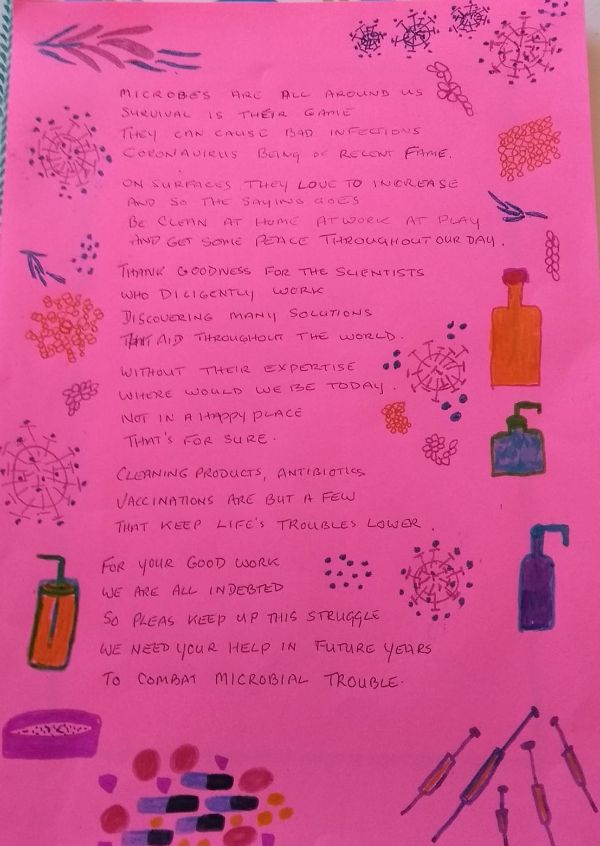 MICROBES ARE ALL AROUND US
SURVIVAL IS THEIR GAME
THEY CAN CAUSE BAD INFECTIONS
CORONAVIRUS BEING OF RECENT FAME.
ON SURFACES THEY LOVE TO INCREASE
AND SO THE SAYING GOES
BE CLEAN AT HOME AT WORK AT PLAY
AND GET SOME PEACE THROUGHOUT OUR DAY.
THANK GOODNESS FOR THE SCIENTISTS
WHO DILIGENTLY WORK
DISCOVERING MANY SOLUTIONS
THAT AID THROUGHOUT THE WORLD.
WITHOUT THEIR EXPERTISE
WHERE WOULD WE BE TODAY.
NOT IN A HAPPY PLACE
THAT'S FOR SURE.
CLEANING PRODUCTS, ANTIBIOTICS
VACCINATIONS ARE BUT A FEW
THAT KEEP LIFE'S TROUBLES LOWER.
FOR YOUR GOOD WORK
WE ARE ALL INDEBTED
SO PLEAS KEEP UP THIS STRUGGLE
WE NEED YOUR HELP IN FUTURE YEARS
TO COMBAT MICROBIAL TROUBLE.